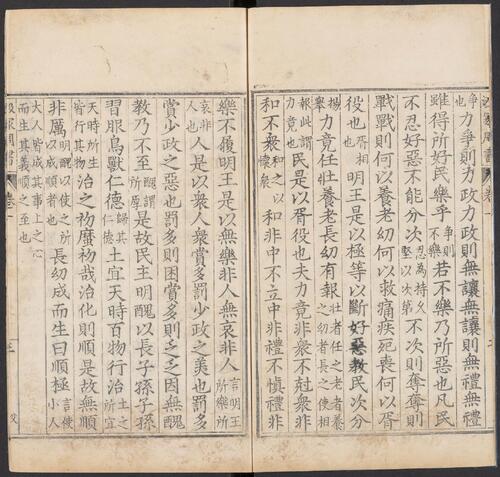 汲冢周書 卷一
爭也力爭則力政力政則無讓無讓則無禮無禮
雖得所好民樂乎爭則不樂若不樂乃所惡也凡民
不忍好惡不能分次忍為持久堅以次第不次則奪奪則
戰戰則何以養老幼何以救痛疾死喪何以胥
役也胥相也明王是以極等以斷好惡教民次分
揚舉力竟任壯養老長幼有報壯者任之老者養之幼者長之使相
報此謂力竟也民是以胥役也夫力竟非衆不尅衆非
和不衆和之以懷衆和非中不立中非禮不慎禮非
樂不履明王是以無樂非人無哀非人言明王所樂所
哀非人也人是以衆人衆賞多罰少政之美也罰多
賞少政之惡也罰多則困賞多則乏乏困無醜
教乃不至醜謂所厚是故民主明醜以長子孫子孫
習服鳥獸仁德歸其仁德土宜天時百物行治土之所宜
天時所生皆行其物治之初厲初哉治化則順是故無順
非厲明醜以使之所以成順者也長幼成而生曰順極言使小人
大人皆成其事上之心而生其義順之至也
汲冢周書 卷一 三